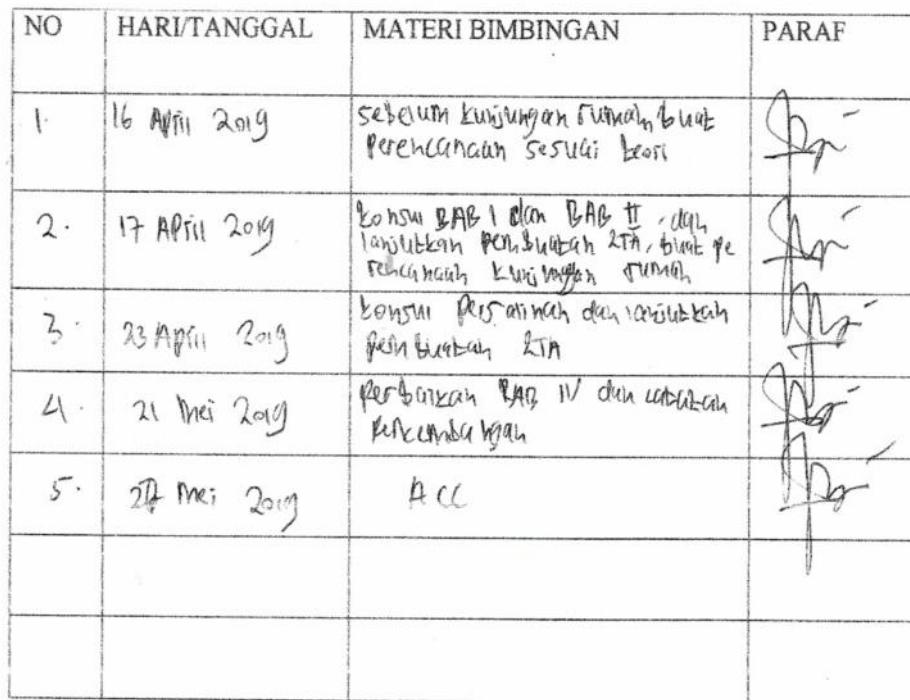 NO HARI/TANGGAL MATERI BIMBINGAN PARAF
1. 16 April 2019 sebelum kunjungan rumah, buat
perencanaan sesuai teori
2. 17 April 2019 konsul BAB I dan BAB II, dan
lanjutkan pembuatan LTA, buat pe
rencanaan kunjungan rumah
3. 23 April 2019 konsul dan lanjutkan
pembuatan LTA
4. 21 Mei 2019 perbaikan BAB IV dan catatan
perkembangan
5. Mei 2019 ACC